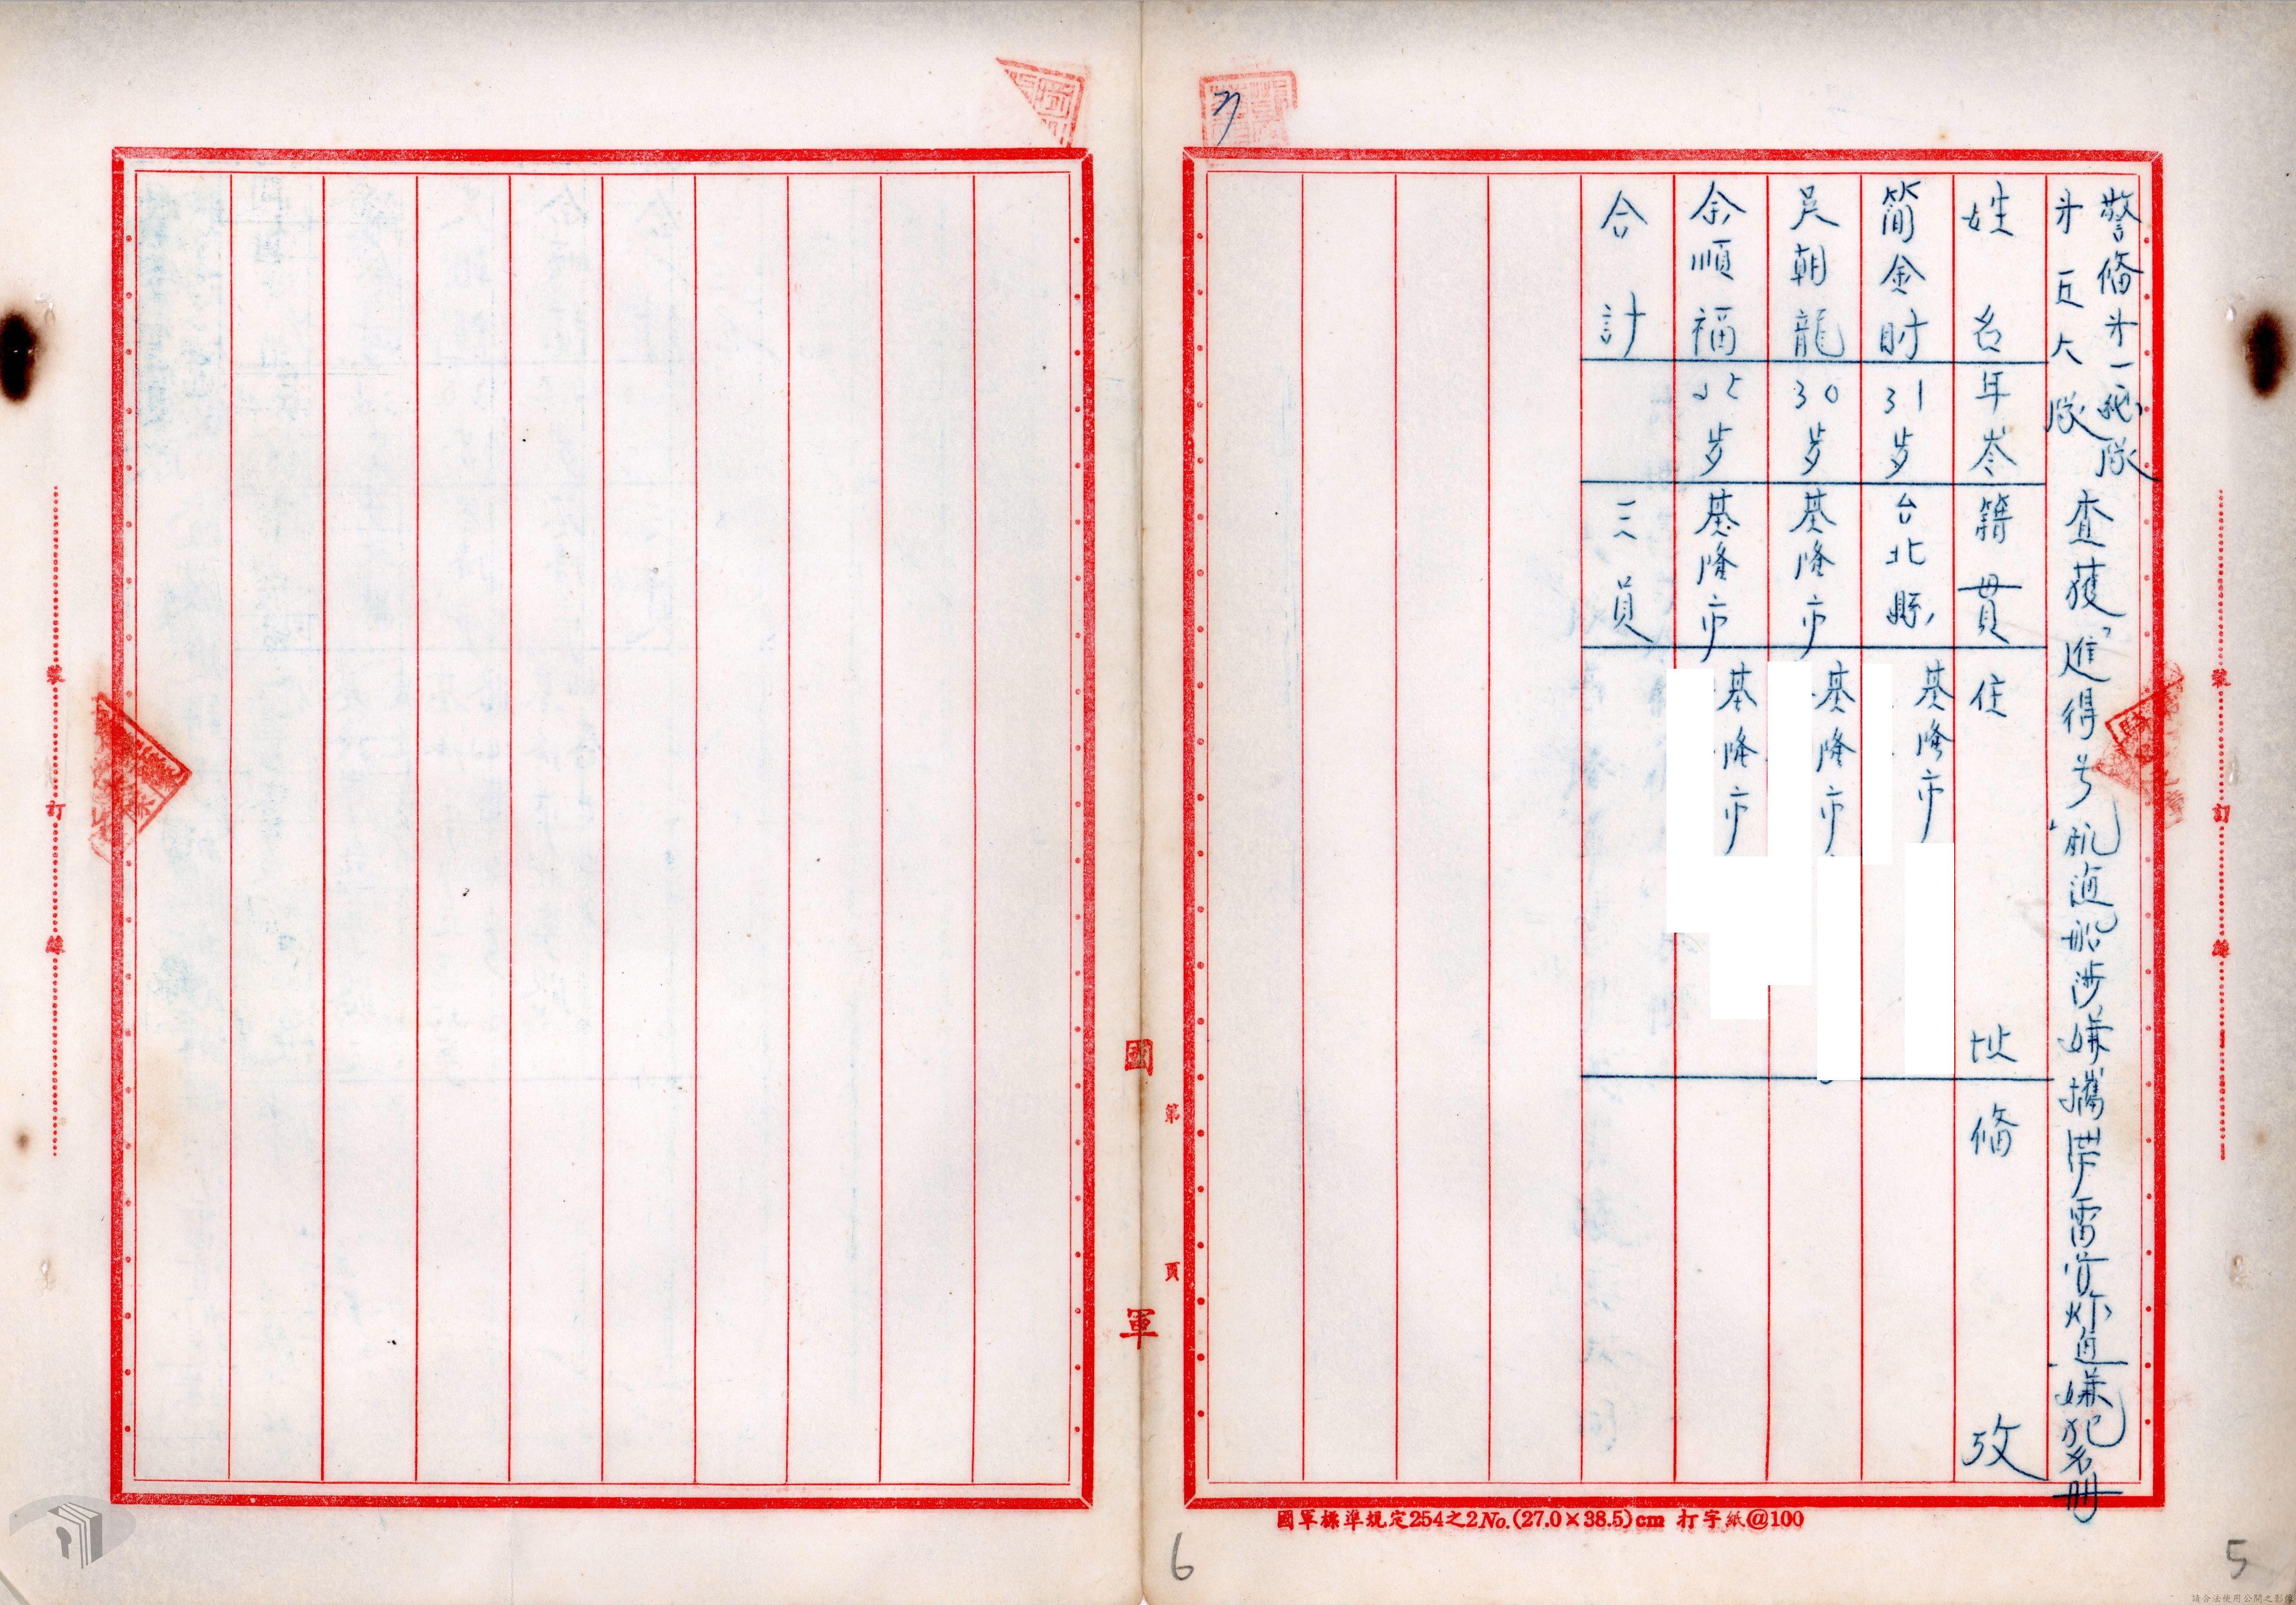 警備才一総隊
才五大隊
查獲"進得号"机漁船涉嫌攜帶雷管炸藥嫌犯名冊
姓名 年岺 籍貫 住址 俻攷
簡金財 31岁 台北縣 基隆市
吳朝龍 30岁 基隆市 基隆市
余順福 25岁 基隆市 基隆市
合計 三員
國軍
第 頁
裝 訂 線
裝 訂 線
國軍標準規定254之2No.(27.0×38.5)cm 打字紙@100
6
5
請合法使用公開之影像